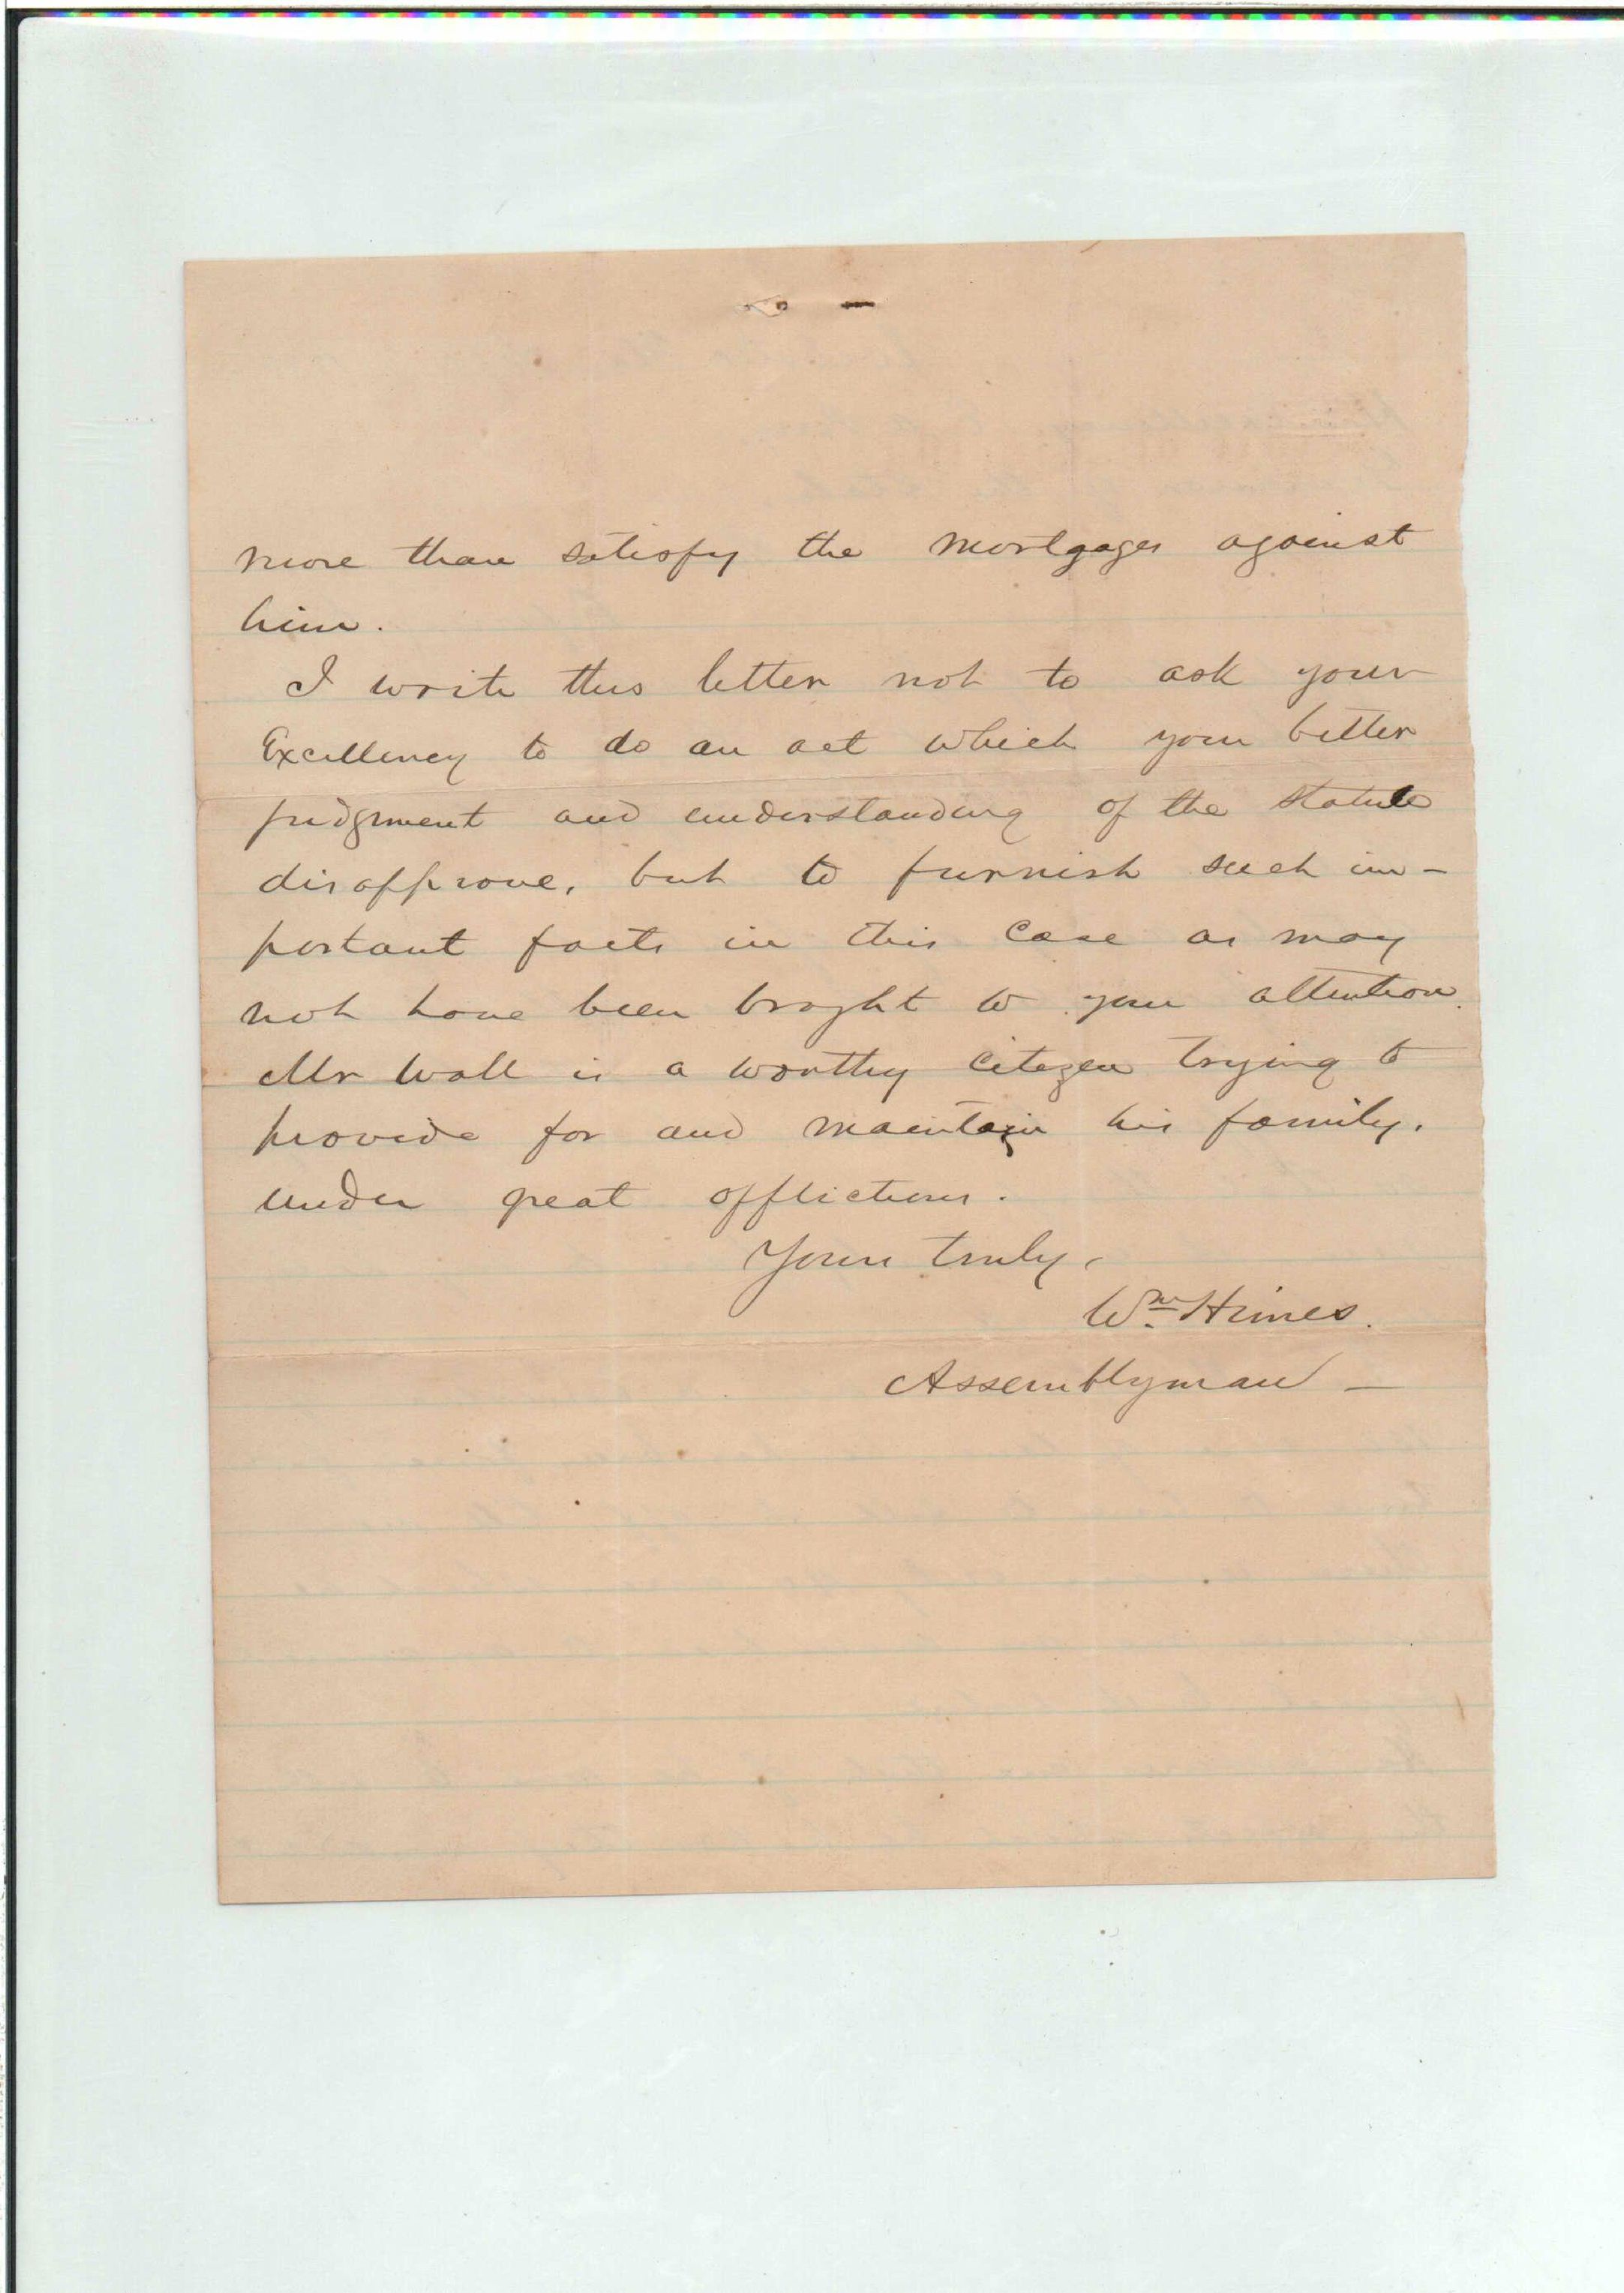 more than satisfy the mortgages against
him.
I write this letter not to ask your
Excellency to do an act which your better
judgment and understanding of the statute
disapprove, but to furnish such im-
portant facts in this case as may
not have been broght to your attention.
Mr Wall is a worthy citizen trying to
provide for and maintain his family,
under great afflictions.
Yours truly,
Wm. Himes.
Assemblyman —